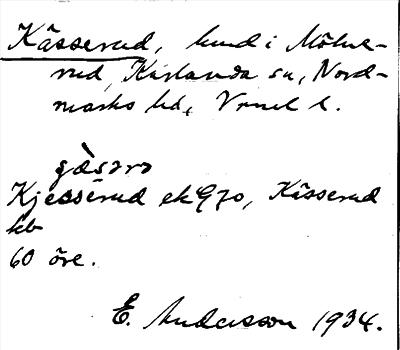 Kässerud, hund i Mölne-
rud, Karlanda sn, Nord-
marks hd, Vrml l.
gæ̀sərə
Kjesserud ek 970, Kässerud
kb
60 öre.
E. Andersson 1934.